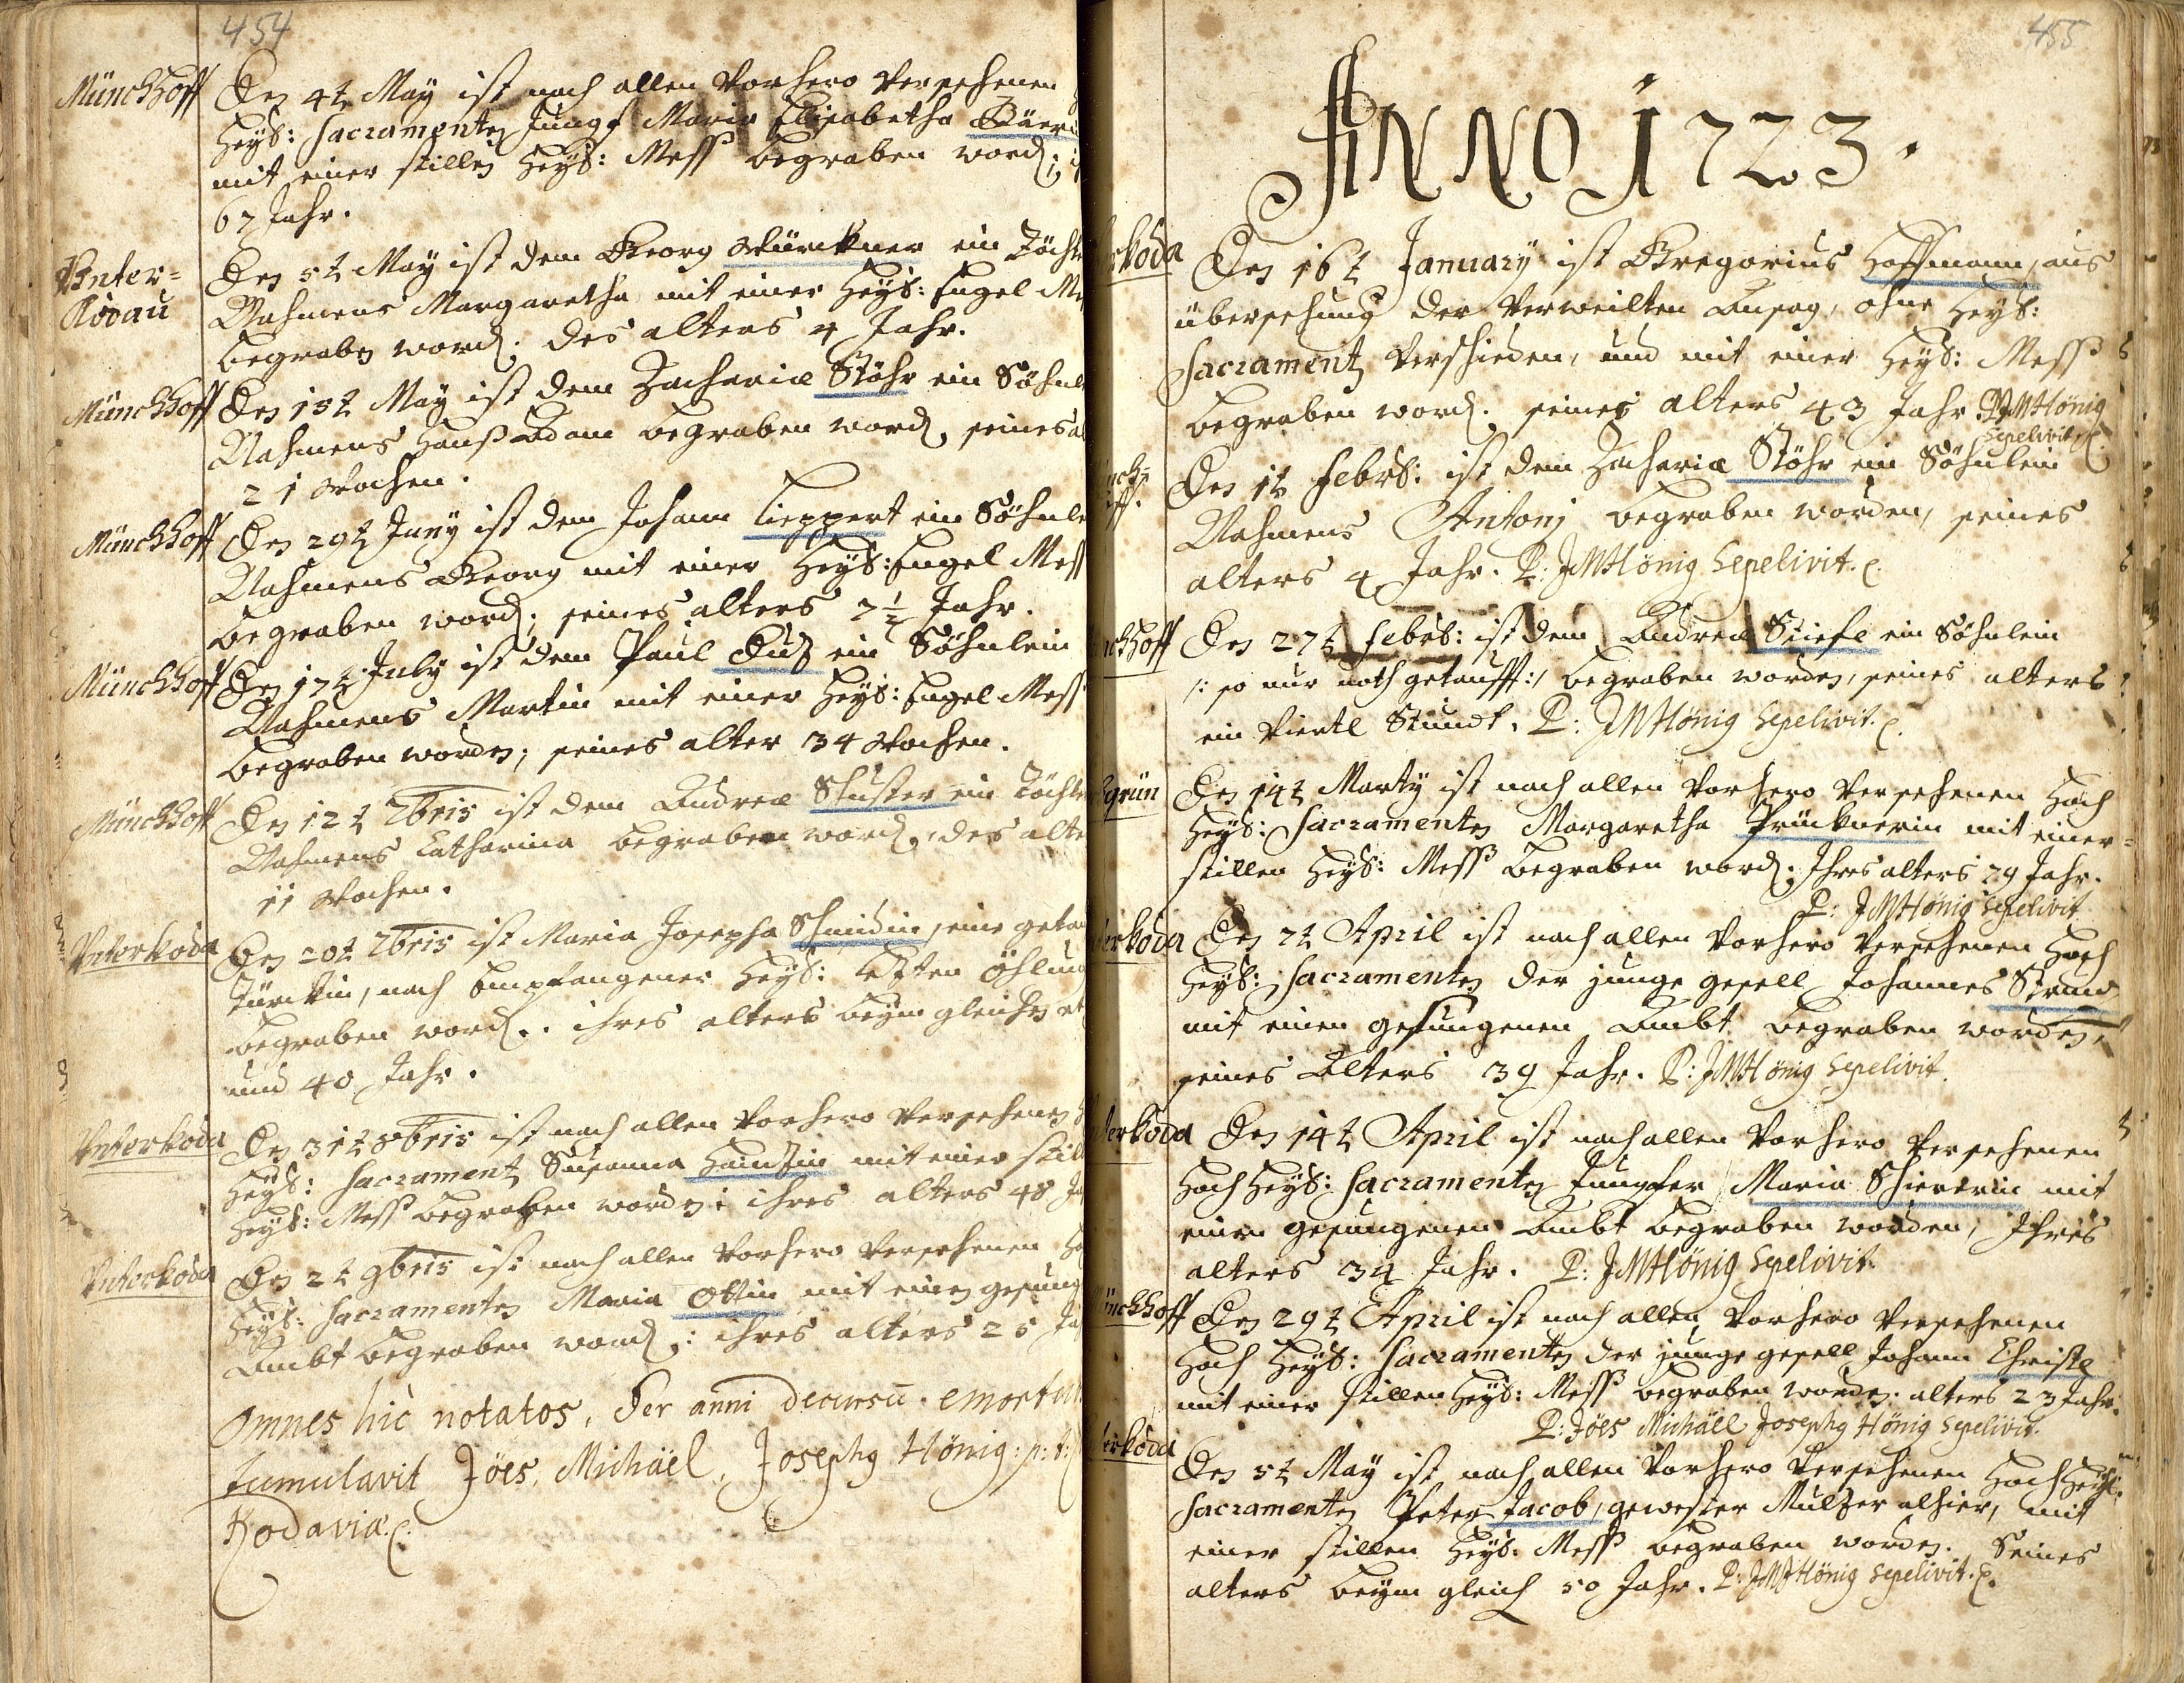 454
Münchhoff
Den 4t May ist nach allen vorhero versehenen
Heyl: Sacramenten Jungf Maria Elisabetha
mit einer stillen Heyl: Mess begraben word;
67 Jahr.
Unter=
Kodau
Den 5t May ist dem Georg Würckner ein
Nahmens Margaretha mit einer Heyl: Engel
begraben word. des alters 4 Jahr.
Münchhoff
Den 15t May ist dem Zachariæ Stöhr ein
Nahmens Hanß Adam begraben word, seines
21 Wochen.
Münchhoff
Den 29t Juny ist dem Johann Lieppert ein
Nahmens Georg mit einer Heyl: Engel Mess
begraben word; seines alters 7½ Jahr.
Münchhoff
Den 17t July ist dem Paul ein Söhnlein
Nahmens Martin mit einer Heyl: Engel Mess
begraben worden; seines alter 34 Wochen.
Münchhoff
Den 12t 7bris ist dem Andreæ Schuster ein
Nahmens Catharina begraben word, des
11 Wochen.
Unterkoda
Den 20t 7bris ist Maria Josepha Schmidin, eine
Türckin, nach Empfangener Heyl: Letzten Öhlung
begraben word.. ihres alters beym gleichen
und 40 Jahr.
Unterkoda
Den 31t 8bris ist nach allen vorhero versehenen
Heyl: Sacrament Susanna mit einer
Heyl: Mess begraben worden: ihres alters 48
Unterkoda
Den 2t 9bris ist nach allen vorhero versehenen
Heyl: Sacramenten Maria Ottin mit einen
Ambt begraben word: ihres alters 25
Omnes hic notatos, Per anni decursū
tumulavit Jöes, Michäel, Joseph9 Hönig: p: t:
Kodaviæ.
455
ANNO 1723.
Den 16t January ist Gregorius Hoffmann, aus
übersehung der verweilten, ohne Heyl:
Sacrament verschieden, und mit einer Heyl: Mess
begraben word. seines alters 43 Jahr P JMHönig
Sepelivit
Den 1t Febrs: ist dem Zachariæ Stöhr ein Söhnlein
Nahmens Antonj begraben worden, seines
alters 4 Jahr. P: JMHönig Sepelivit.
Den 27t Febrs: ist dem Andreæ Stiefl ein Söhnlein
/: so nur noth getaufft:/ begraben worden, seines alters
ein Viertl Stundt. P: JMHönig Sepelivit.
grün
Den 14t Marty ist nach allen vorhero versehenen Hoch
Heyl: Sacramenten Margaretha Prücknerin mit einer=
stillen Heyl: Mess begraben word. Ihres alters 29 Jahr.
P: JMHönig Sepelivit
Den 7t April ist nach allen vorhero versehenen Hoch
Heyl: Sacramenten der junge gesell Johannes
mit einen gesungenen Ambt begraben worden,
seines Alters 39 Jahr. P: JMHönig Sepelivit.
Den 14t April ist nach allen vorhero versehenen
Hoch Heyl: Sacramenten Jungfer Maria mit
einen gesungenen Ambt begraben worden, Ihres
alters 34 Jahr. P: JMHönig Sepelivit.
Den 29t April ist nach allen vorhero versehenen
Hoch Heyl: Sacramenten der junge gesell Johann Christl
mit einer stillen Heyl: Mess begraben worden. alters 23 Jahr.
P: Jöes Michäel Joseph9 Hönig Sepelivit.
Den 5t May ist nach allen vorhero versehenen Hoch Heyl:
Sacramenten Peter Jacob, gewester Multzer alhier, mit
einer stillen Heyl: Mess begraben worden. Seines
alters beym gleich 50 Jahr. P: JMHönig Sepelivit.